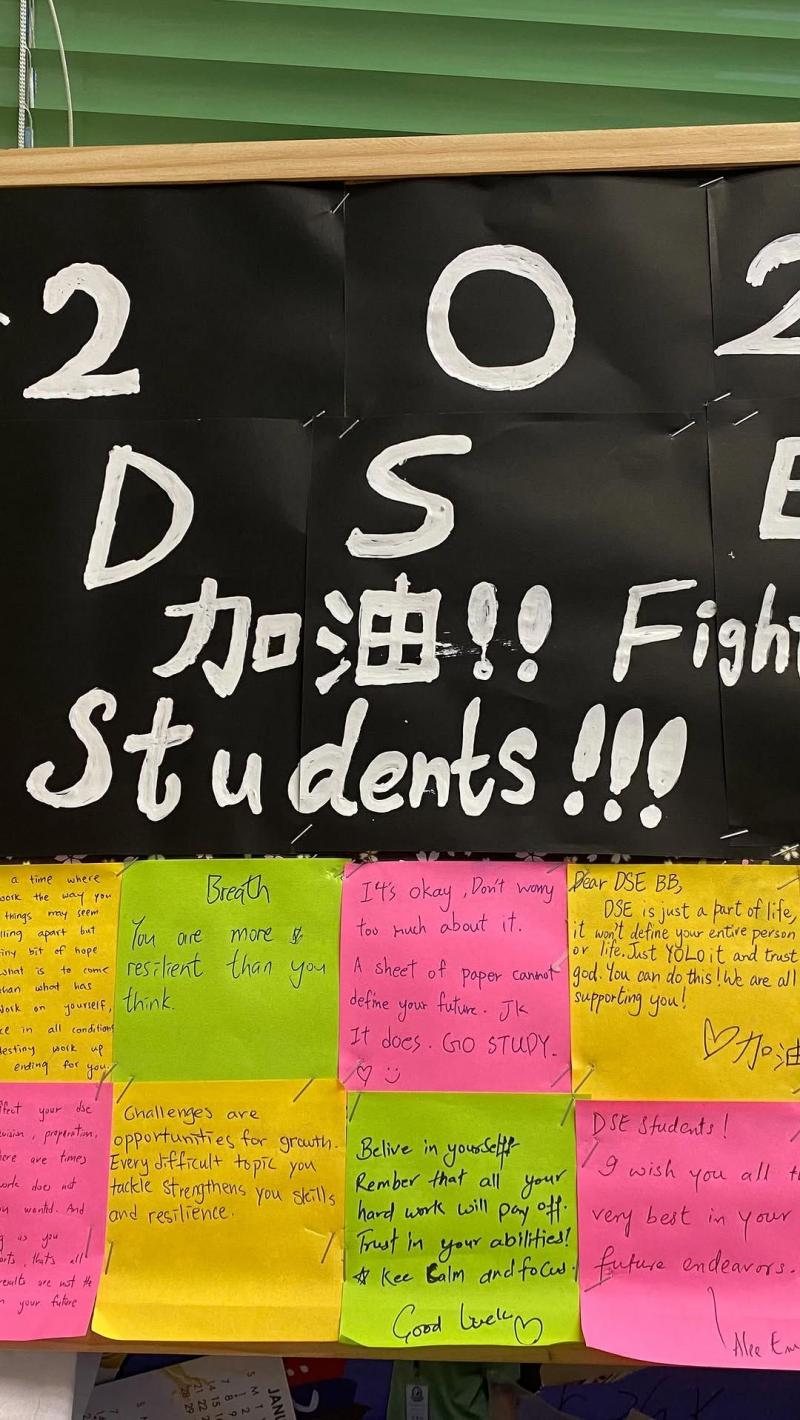 2 0 2
D S E
加油!! Fight
Students!!!
a time where
work the way you
things may seem
lling apart but
iny bit of hope
what is to come
than what has
work on yourself,
ce in all conditions
destiny work up
ending for you.
Breath
You are more
resilient than you
think.
It's okay, Don't worry
too much about it.
A sheet of paper cannot
define your future. Jk
It does. GO STUDY.
Dear DSE BB,
DSE is just a part of life,
it won't define your entire person
or life. Just YOLO it and trust
god. You can do this! We are all
supporting you!
加油
ffect your dse
vision, preparation,
here are times
work does not
ou wanted. And
g as you
orts, that's all
results are not the
n your future
Challenges are
opportunities for growth.
Every difficult topic you
tackle strengthens you skills
and resilience.
Belive in yourself
Rember that all your
hard work will pay off.
Trust in your abilities!
☆ Kee Calm and focus.
Good luck
DSE Students!
I wish you all t
very best in your
future endeavors.
JANU